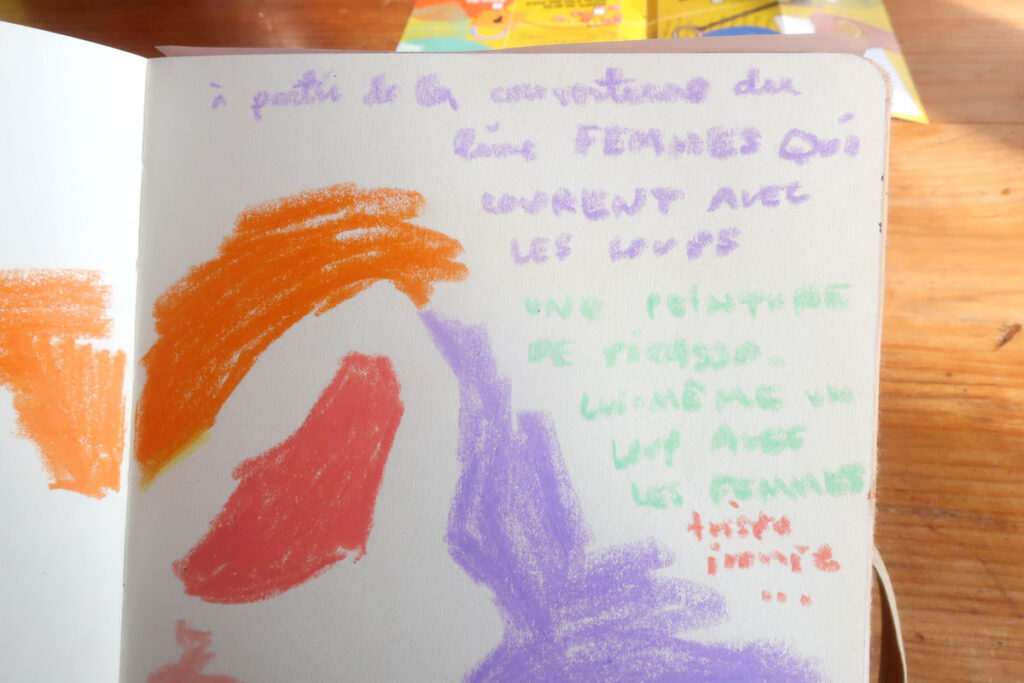 à partir de la couverture du
livre FEMMES QUI
COURENT AVEC
LES LOUPS
UNE PEINTURE
DE PICASSO.
LUI-MÊME UN
LOUP AVEC
LES FEMMES
triste
ironie
...